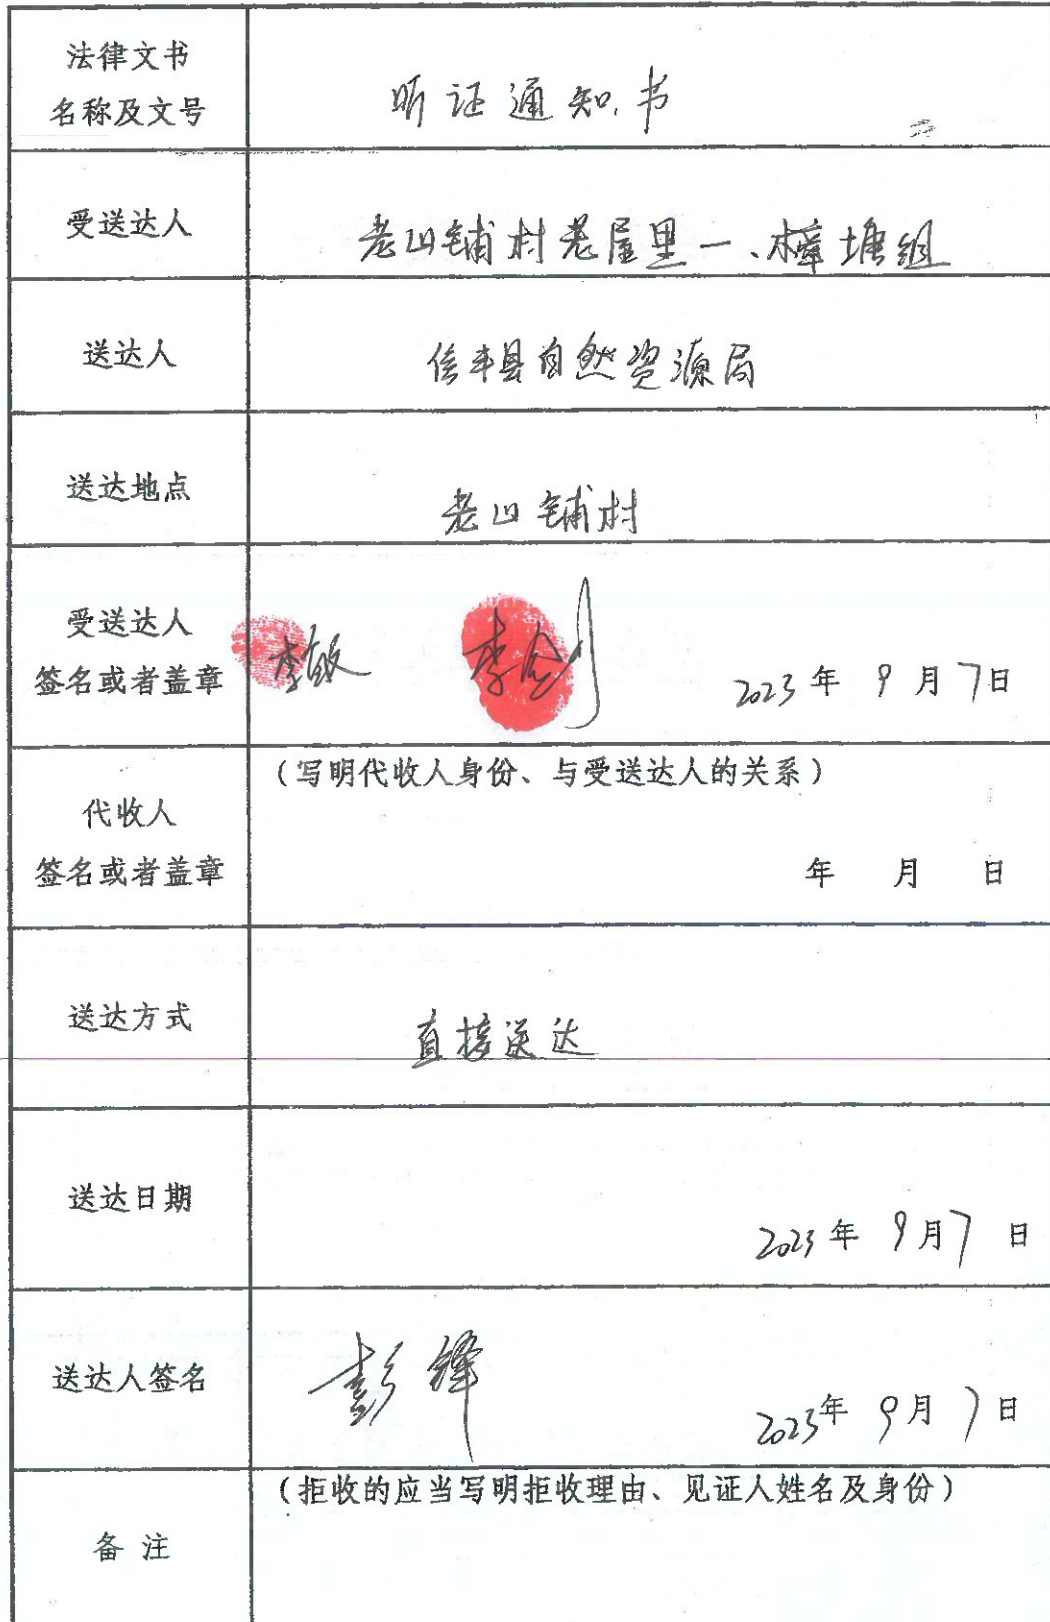 法律文书
名称及文号
听证通知书
受送达人
老山铺村老屋里一、樟塘组
送达人
信丰县自然资源局
送达地点
老山铺村
受送达人
签名或者盖章
李敏
2023年9月7日
代收人
签名或者盖章
(写明代收人身份、与受送达人的关系)
年 月 日
送达方式
直接送达
送达日期
2023年9月7日
送达人签名
彭锋
2023年9月7日
备注
(拒收的应当写明拒收理由、见证人姓名及身份)